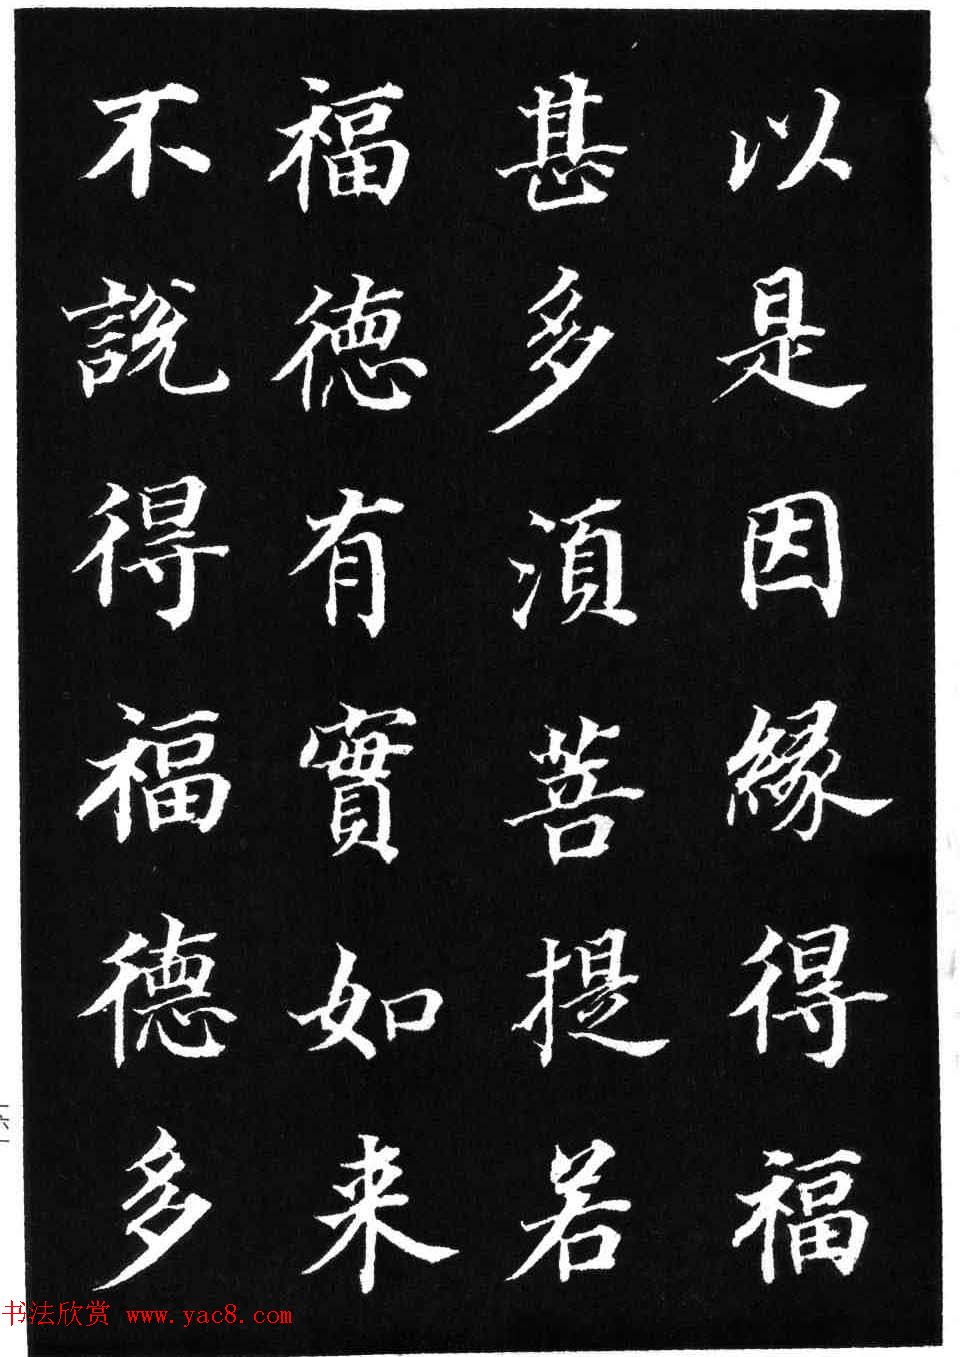 以是因緣得福
甚多湏菩提若
福德有實如来
不說得福德多
书法欣赏 www.yac8.com